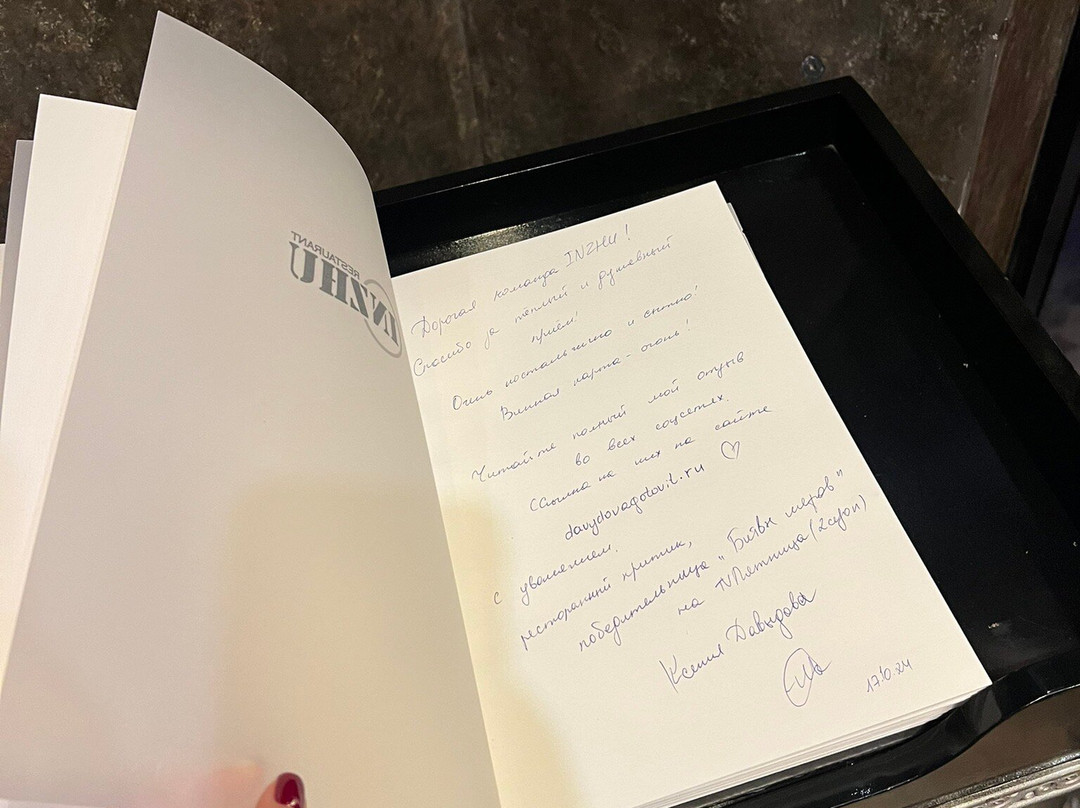 RESTAURANT
INZHU
Дорогая команда INZHU!
Спасибо за тёплый и душевный
приём!
Очень ностальгично и сытно!
Винная карта - огонь!
Читайте полный мой отзыв
во всех соцсетях.
Ссылка на них на сайте
davydovagotovit.ru ♡
С уважением,
ресторанный критик,
победительница "Битвы шефов"
на TV Пятница (2 сезон)
Ксения Давыдова
17.10.24